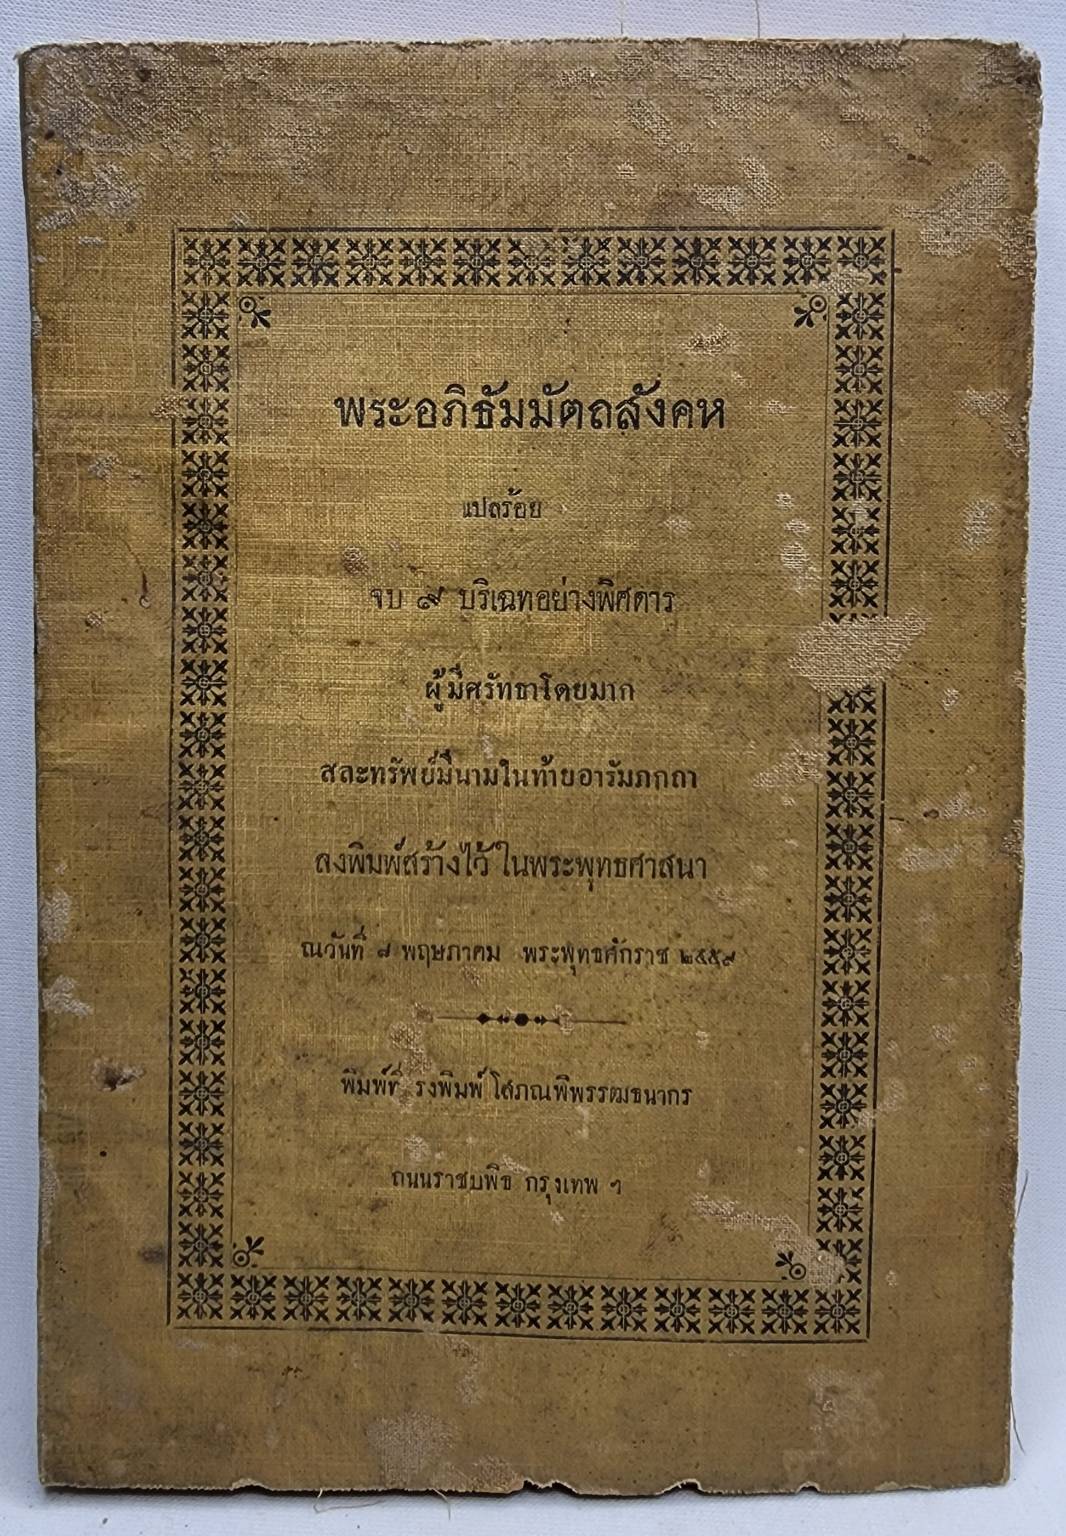 พระอภิธัมมัตถสังคห
แปลร้อย
จบ ๙ บริเฉทอย่างพิศดาร
ผู้มีศรัทธาโดยมาก
สละทรัพย์มีนามในท้ายอารัมภกถา
ลงพิมพ์สร้างไว้ในพระพุทธศาสนา
ณวันที่ ๘ พฤษภาคม พระพุทธศักราช ๒๔๕๙
พิมพ์ที่ รงพิมพ์ โสภณพิพรรฒธนากร
ถนนราชบพิธ กรุงเทพ ฯ